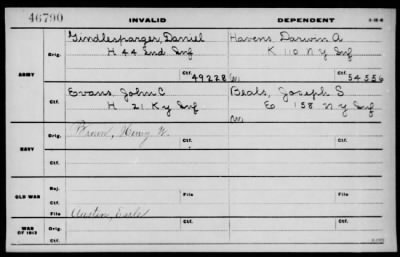 46790 INVALID DEPENDENT
Gindlesparger, Daniel Havens, Darwin A
Orig. H 44 Ind Inf K 110 N Y Inf
ARMY Ctf. 49228 Ctf. 54556
Evans, John C Beals, Joseph S
H 21 Ky Inf Co 158 N Y Inf
Ctf.
Orig. Brown, Henry W.
NAVY
Ctf. Ctf.
Rej.
OLD WAR Ctf. File
File Austin, Earle
WAR OF 1812 Orig. Ctf.
Ctf.